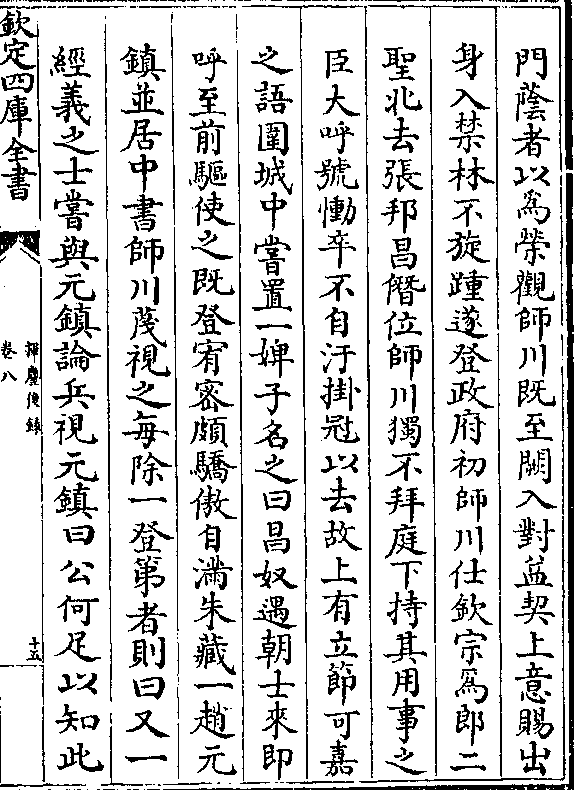 門蔭者以為榮觀師川既至闕入對益契上意賜出
身入禁林不旋踵遂登政府初師川仕欽宗為郎二
聖北去張邦昌僭位師川獨不拜庭下持其用事之
臣大呼號慟卒不自汙掛冠以去故上有立節可嘉
之語圍城中嘗置一婢子名之曰昌奴遇朝士來即
呼至前驅使之既登宥密頗驕傲自滿朱藏一趙元
鎮並居中書師川蔑視之每除一登第者則曰又一
經義之士嘗與元鎮論兵視元鎮曰公何足以知此
欽定四庫全書
揮麈後錄
卷八
十五